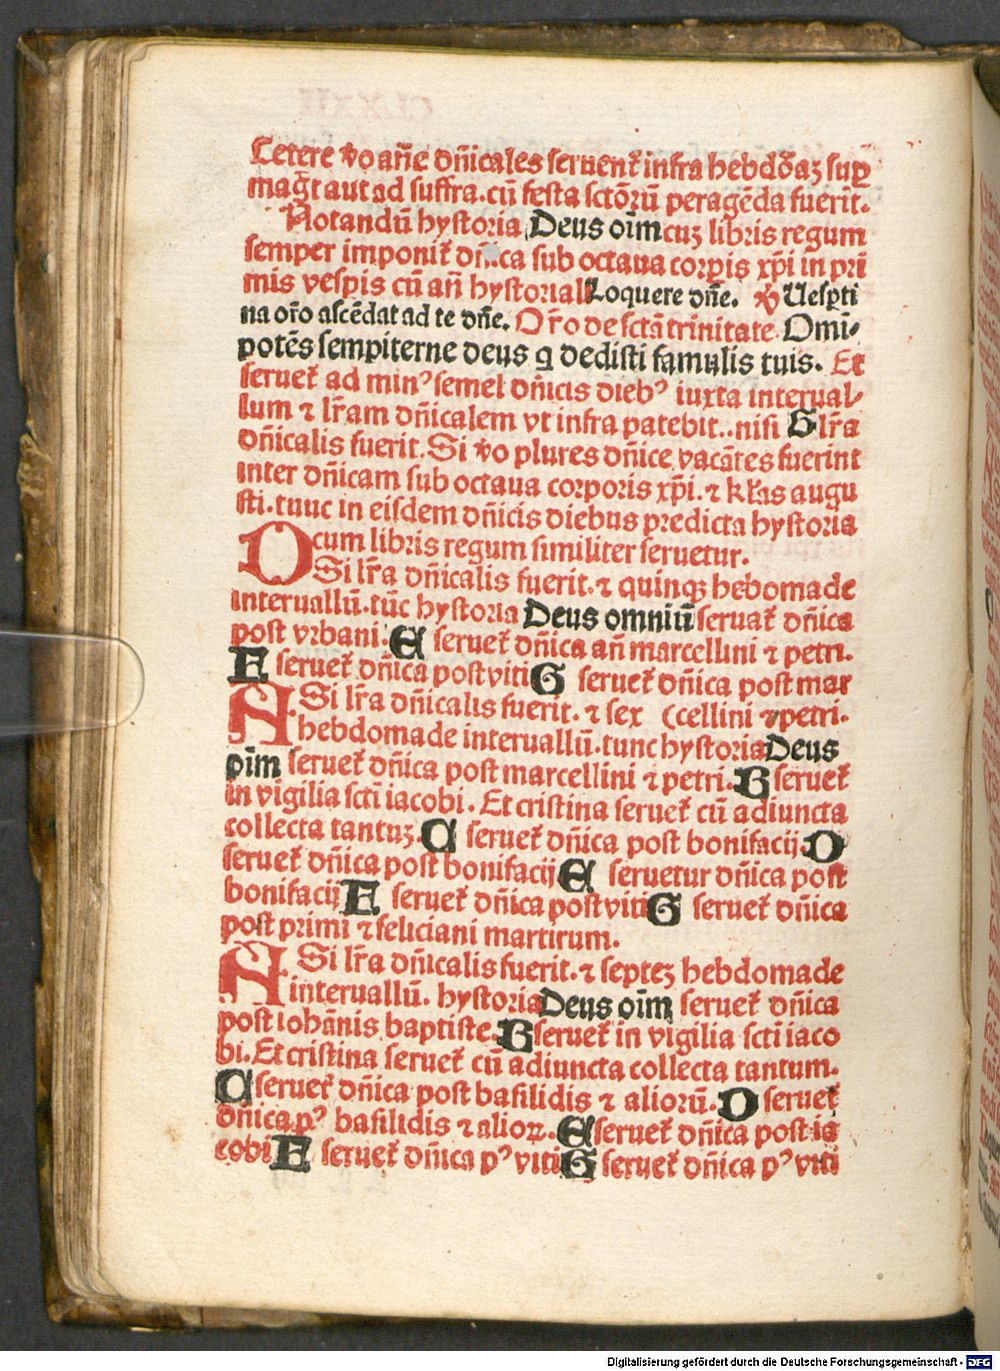 Cetere v̄o an̄e dn̄icales seruent᷑ infra hebdōaꝫ sup̄
magt̄ aut ad suffra. cū festa sctōꝝū peragēda fuerīt.
Notandū hystoria Deus oīm cuꝫ libris regum
semper imponit᷑ dn̄ica sub octaua corpꝛis xp̄i in pri
mis vespis cū an̄ hystoriali Loquere dn̄e. ℟ Uesp̱ti
na or̄o ascēdat ad te dn̄e. Or̄o de sctā trinitate Omi⸗
potēs sempiterne deus q̇ dedisti famulis tuis. Et
seruet᷑ ad minꝰ semel dn̄icis diebꝰ iuxta interual⸗
lum ⁊ lr̄am dn̄icalem vt infra patebit.. nisi G lr̄a
dn̄icalis fuerit. Si v̄o plures dn̄ice vacātes fuerint
inter dn̄icam sub octaua corporis xp̄i. ⁊ kl̄as augu
sti. tunc in eisdem dn̄icis diebus predicta hystoria
cum libris regum similiter seruetur.
D Si lr̄a dn̄icalis fuerit. ⁊ quinqꝫ hebomade
interuallū. tūc hystoria Deus omniū seruat᷑ dn̄ica
post vrbani. E seruet᷑ dn̄ica an̄ marcellini ⁊ petri.
F seruet᷑ dn̄ica post viti G seruet᷑ dn̄ica post mar
A Si lr̄a dn̄icalis fuerit. ⁊ sex (cellini ⁊ petri.
hebdomade interuallū. tunc hystoria Deus
oīm seruet᷑ dn̄ica post marcellini ⁊ petri. B seruet᷑
in vigilia scti iacobi. Et cristina seruet᷑ cū adiuncta
collecta tantuꝫ. C seruet᷑ dn̄ica post bonifacij D
seruet᷑ dn̄ica post bonifacij E seruetur dn̄ica post
bonifacij F seruet᷑ dn̄ica post viti G seruet᷑ dn̄ica
post primi ⁊ feliciani martirum.
A Si lr̄a dn̄icalis fuerit. ⁊ septeꝫ hebdomade
interuallū. hystoria Deus oīm seruet᷑ dn̄ica
post iohānis baptiste. B seruet᷑ in vigilia scti iaco
bi. Et cristina seruet᷑ cū adiuncta collecta tantum.
C seruet᷑ dn̄ica post basilidis ⁊ aliorū. D seruet᷑
dn̄ica pꝰ basilidis ⁊ alioꝝ. E seruet᷑ dn̄ica post ia
cobi F seruet᷑ dn̄ica pꝰ viti G seruet᷑ dn̄ica pꝰ viti
Digitalisierung gefördert durch die Deutsche Forschungsgemeinschaft - DFG